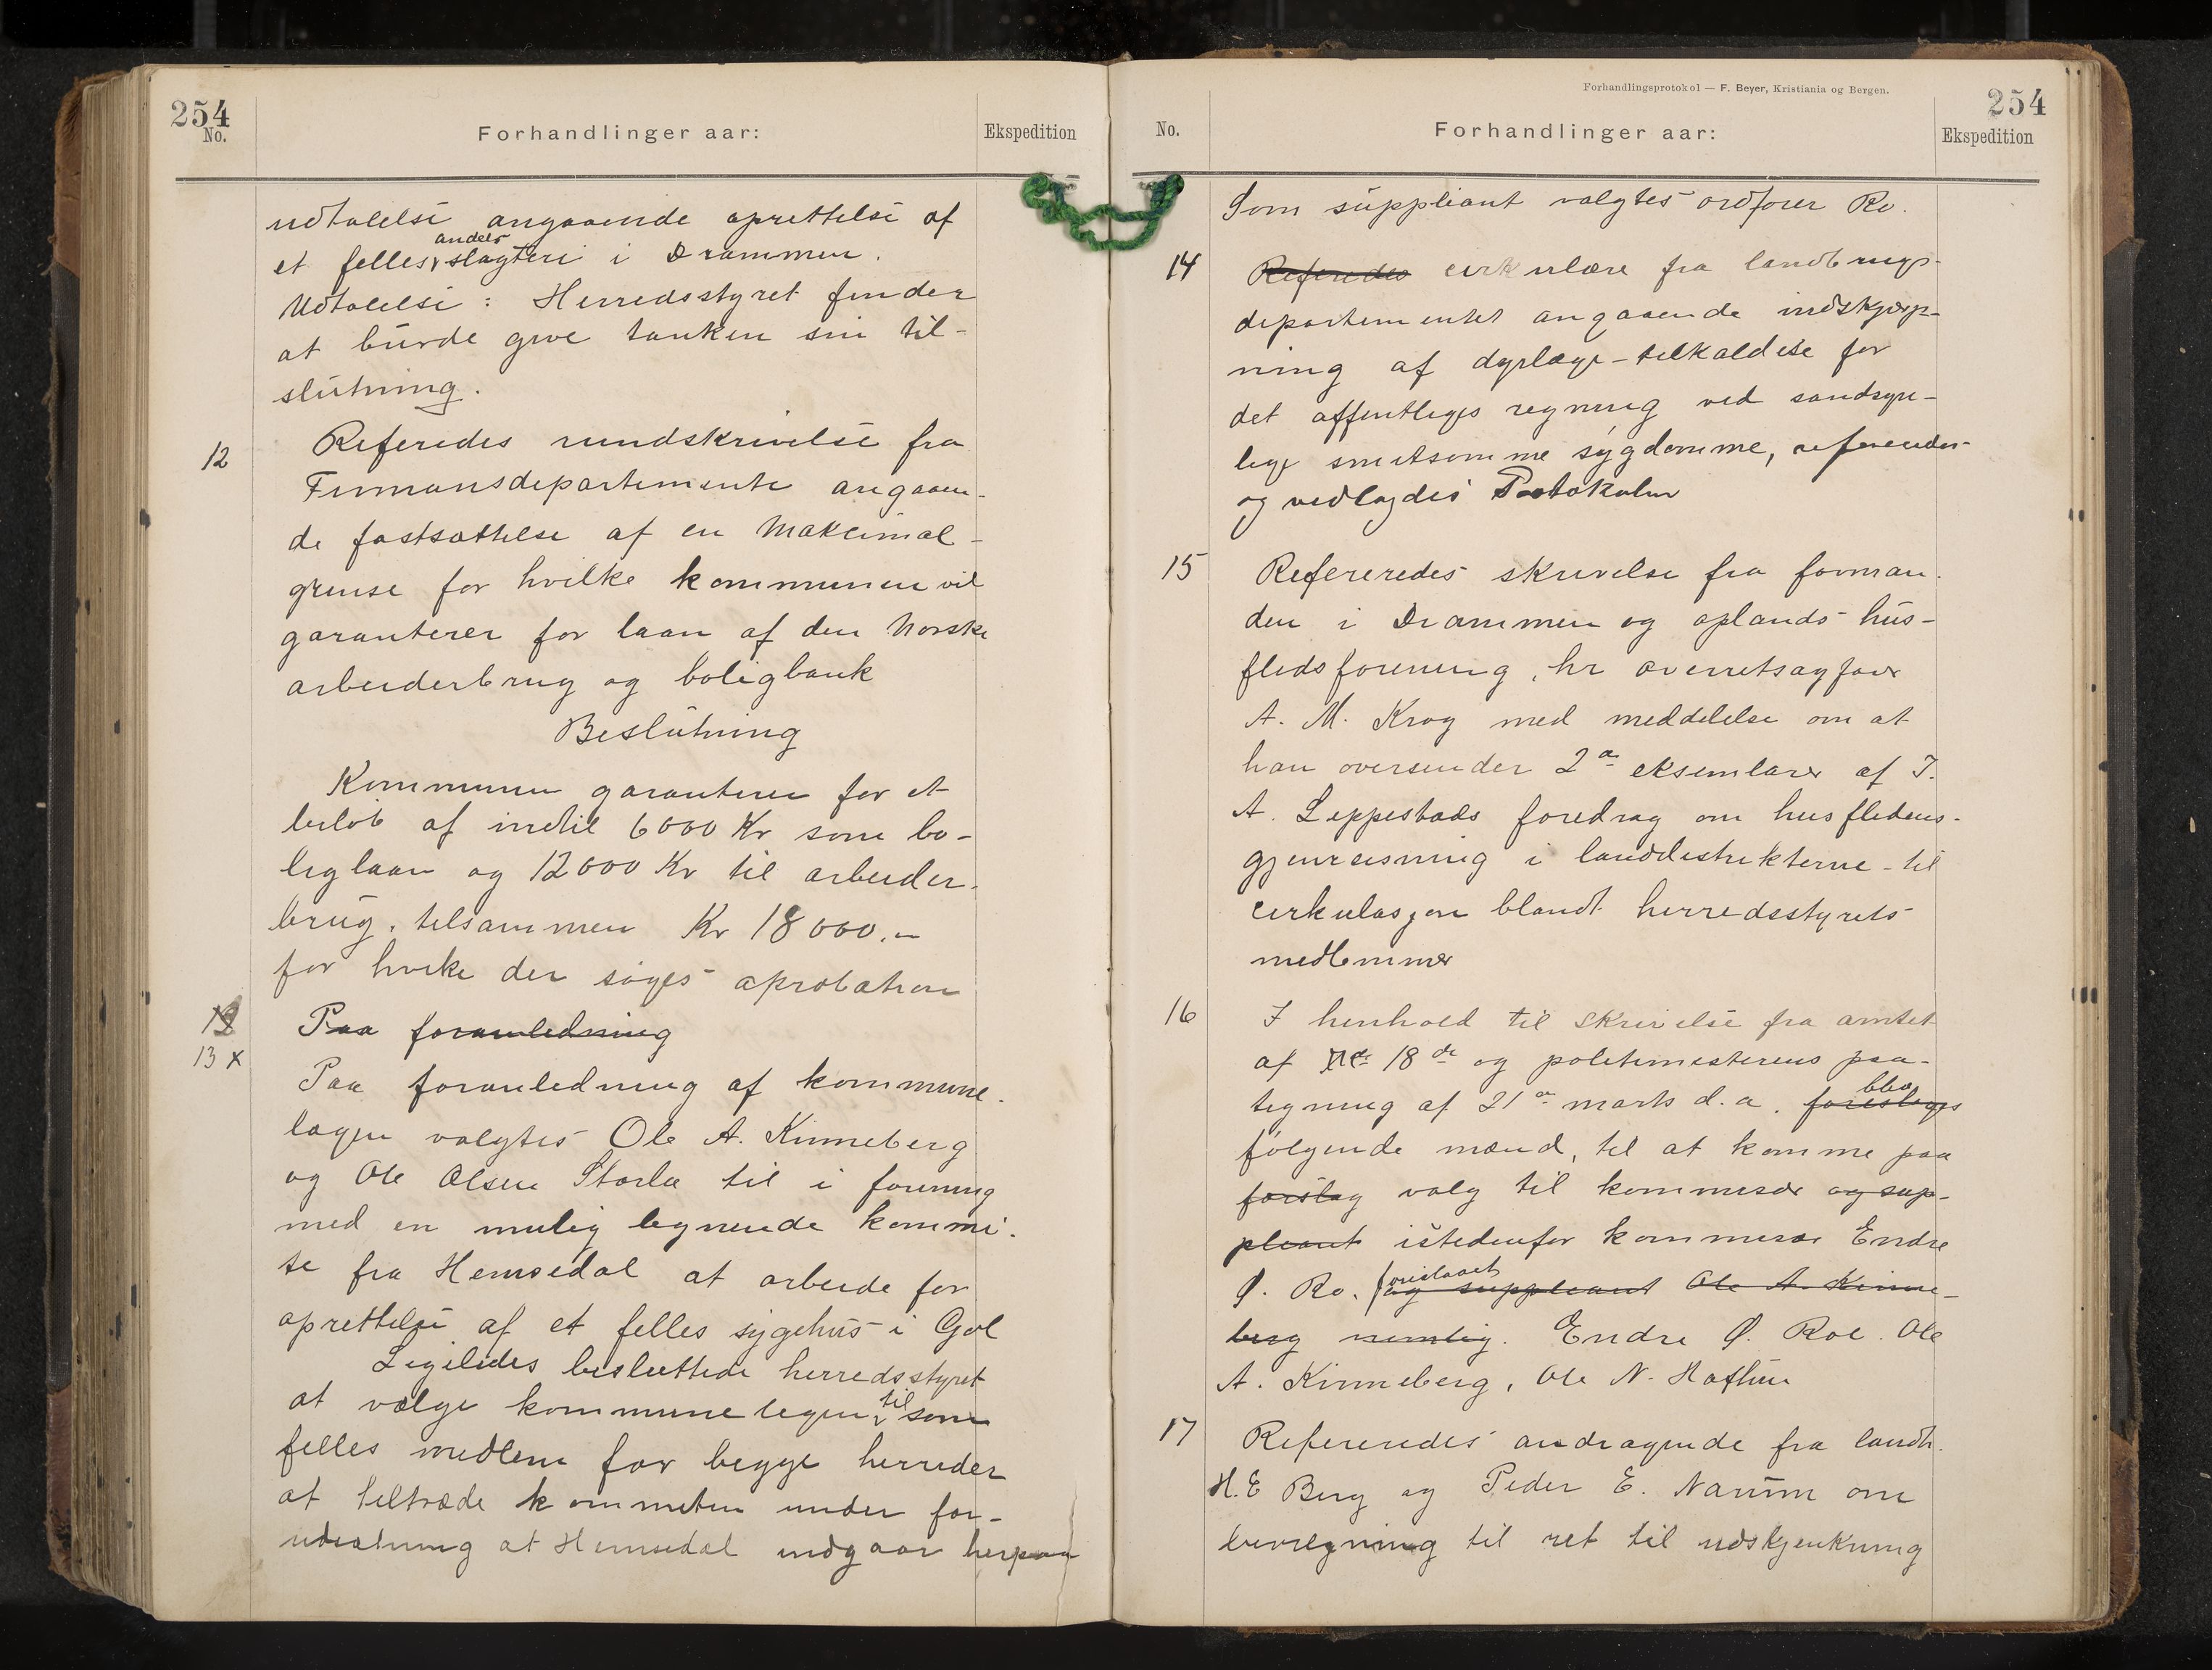 254
No.
Forhandlinger aar:
Ekspedition
udtalelse angaaende oprettelse af
et felles andels slagteri i Drammen.
Udtalelse: Herredsstyret finder
at burde give tanken sin til-
slutning.
12
Referedes rundskrivelse fra
Finnansdepartemente angaaen-
de fastsættelse af en Makcimal-
grense for hvilke kommunen vil
garanterer for laan af den Norske
arbeiderbrug og boligbank
Beslutning
Kommunen garanterer for et
beløb af indtil 6000 Kr som bo-
liglaan og 12000 Kr til arbeider-
brug, tilsammen Kr 18000.-
for hvike der søges aprobation
Paa foranledning
13 x
Paa foranledning af kommune-
lægen valgtes Ole A. Kinneberg
og Ole Olsen Storla til i forening
med en mulig lignende kommi-
te fra Hemsedal at arbeide for
oprettelse af et felles sygehus i Gol
Ligeledes besluttede herredsstyret
at vælge kommunelegen til som
felles medlem for begge herreder
at tiltræde kommiteen under for-
udsætning at Hemsedal indgaar herpaa
Forhandlingsprotokol — F. Beyer, Kristiania og Bergen.
254
No.
Forhandlinger aar:
Ekspedition
Som suppleant valgtes ordfører Ro.
14
Referedes cirkulære fra landbrugs-
departementet angaaende indskjærp-
ning af dyrlæge-tilkaldelse for
det offentliges regning ved sandsyn-
lige smitsomme sygdomme, refereredes
og vedlagdes Protokolen
15
Refereredes skrivelse fra forman-
den i Drammen og oplands hus-
flidsforening, hr overretsagfører
A. M. Krog med meddelelse om at
han oversender 2 eksemlarer af I.
A. Leppestads foredrag om husflidens-
gjenreisning i landdistrikterne til
cirkulasjon blandt herredsstyrets
medlemmer
16
I henhold til skrivelse fra amtet
af 18de og politimesterens paa-
tegning af 21 marts d.a. foreslages blev
følgende mænd, til at komme paa
forslag valg til kommisær og sup-
pleant istedenfor kommisær Endre
Ø. Ro. foreslaaet og suppleant Ole A. Kinne-
berg nemlig. Endre Ø. Roe. Ole
A. Kinneberg, Ole N. Haftun
17
Refereredes andragende fra landh.
H.E Berg og Peder E. Narum om
bevilgning til ret til udskjenkning